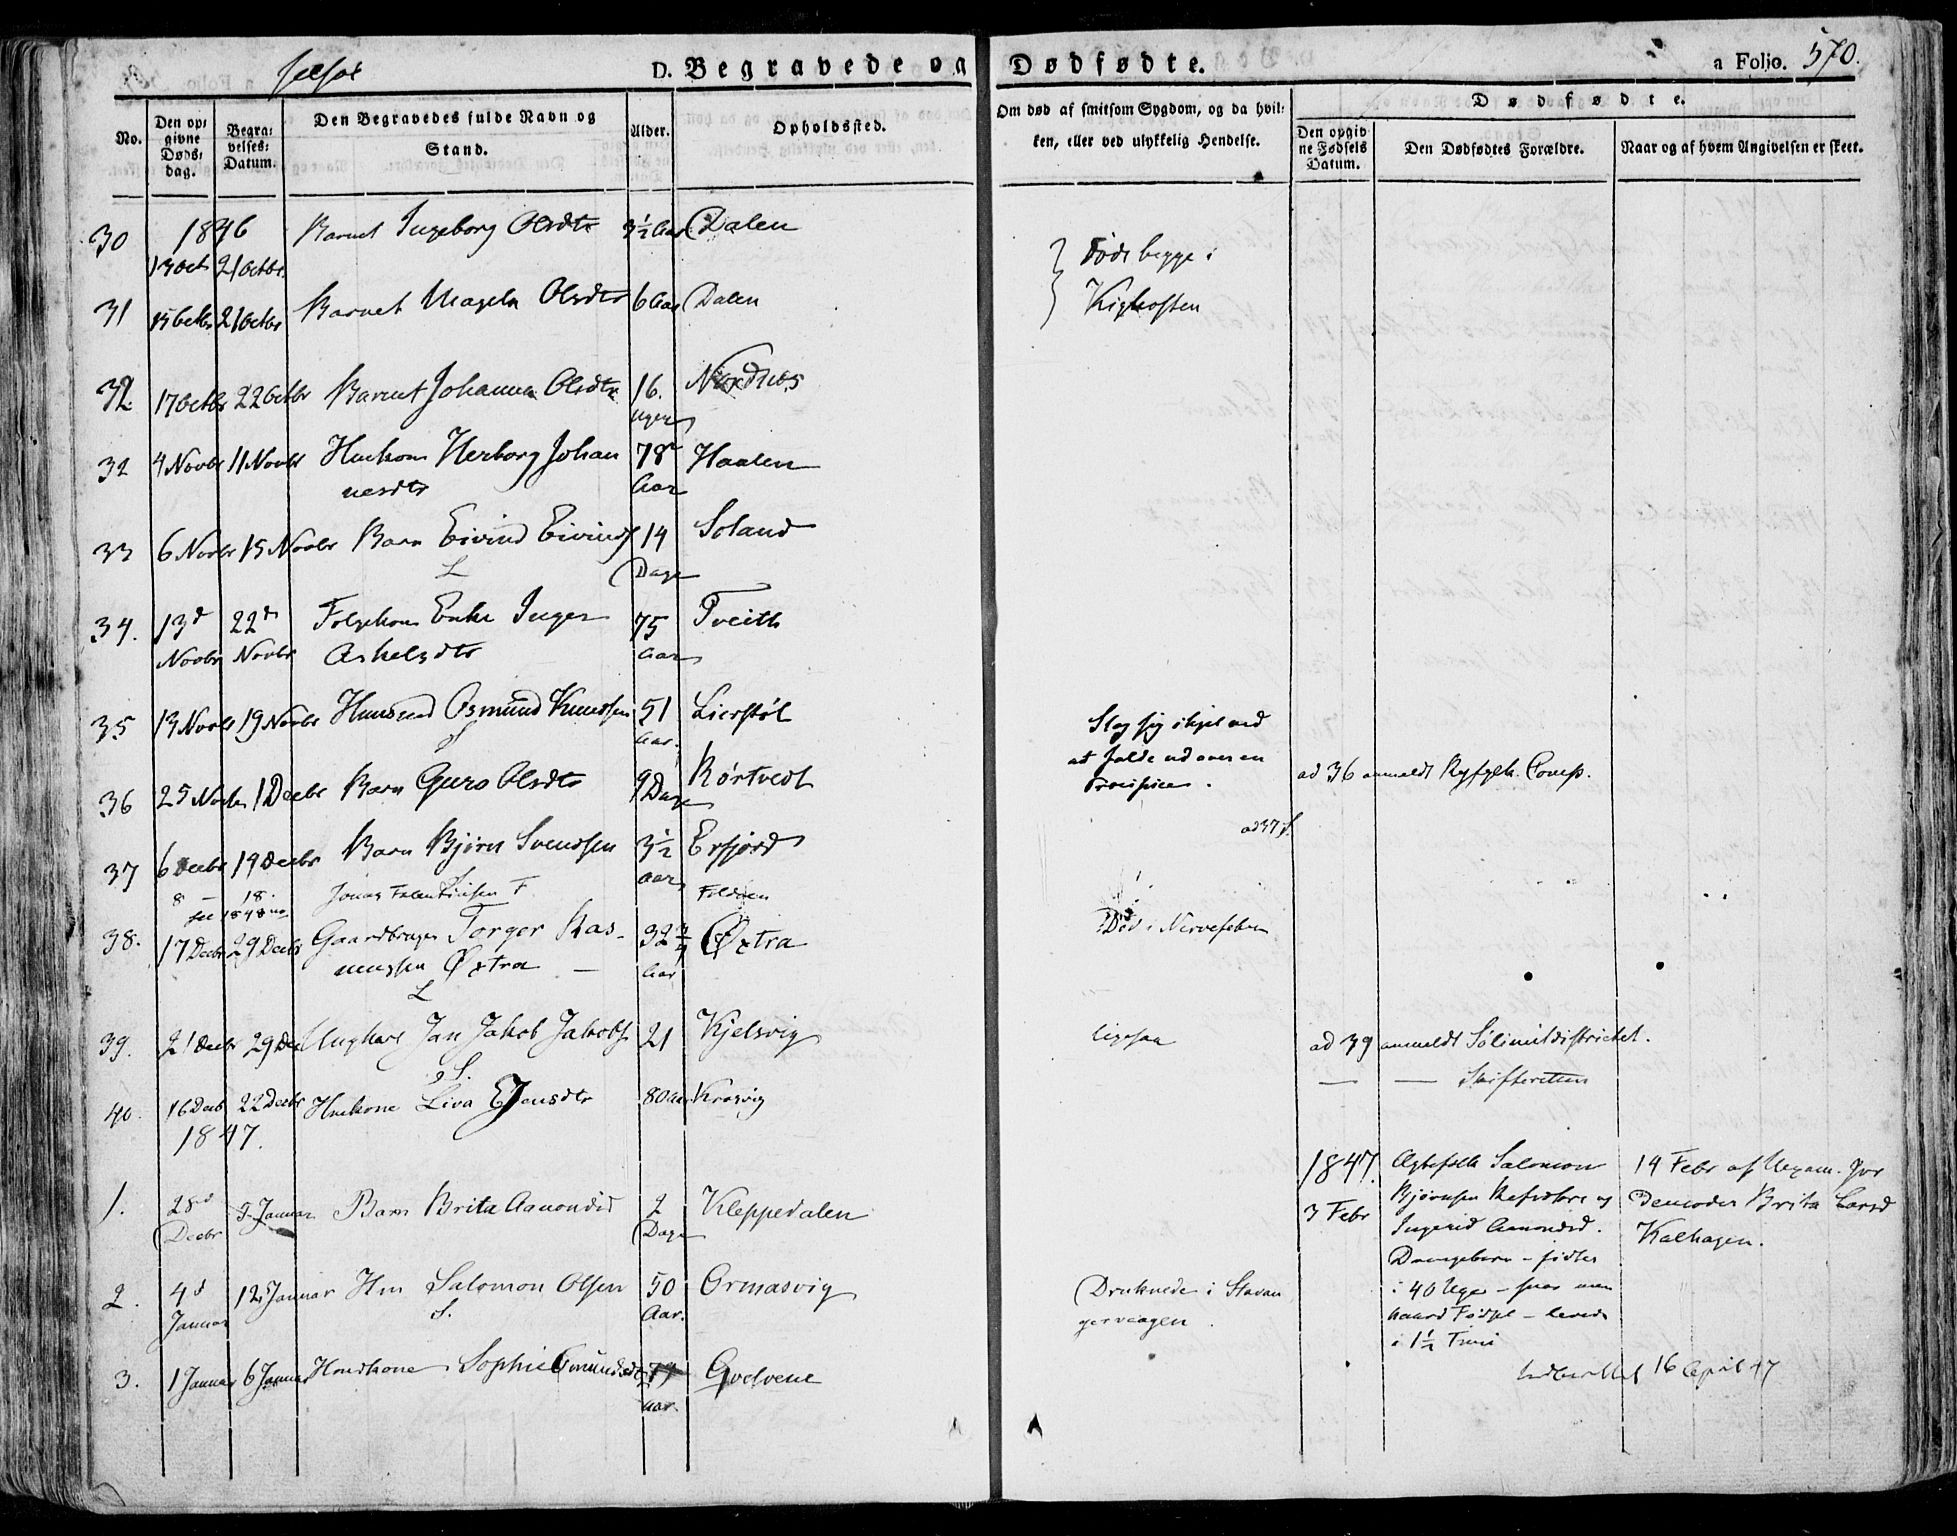 D. Begravede og Dødfødte.
a Folio. 570.
No.
Den op-
givne
Døds-
dag.
Begra-
velses-
Datum.
Den Begravedes fulde Navn og
Stand.
Alder.
Opholdssted.
Om død af smitsom Sygdom, og da hvil-
ken, eller ved ulykkelig Hendelse.
Dødfødte.
Den opgiv-
ne Fødsels
Datum.
Den Dødfødtes Forældre.
Naar og af hvem Angivelsen er skeet.
1846
30 13 Oct 21 Octbr Barnet Ingeborg Olsdtr 3½ Aar Dalen
Døde begge i
Kighosten
31 15 Octbr 21 Octbr Barnet Olsdtr 6 Aar Dalen
32 17 Octbr 22 Octbr Barnet Johanna Olsdtr 16 Uger
32 4 Novbr 11 Novbr Huuskone Herborg Johan
nesdtr 78 Aar Haalen
33 6 Novbr 15 Novbr Barn Eivind Eivinds 14 Dage Soland
34. 13d Novbr 22d Novbr Enke Inger
Askelsdtr 75 Aar Tveith
35 13 Novbr 19 Novbr Huusmd Osmund Knudsen 51 Aar. Lierstøl
Slog sig ihjel ved
at falde ud over en
36 25 Novbr 1 Decbr Barn Guro Olsdtr 9 Dage Rørtvedt
ad 36 anmeldt Ryfylk. Comp.
ad 37 f.
37 6 Decbr 19 Decbr Barn Bjørn Svendsen 3½ Aar Erfjord
8 - 18.
38. 17 Decbr 29 Decbr Gaardbruger Torger Ras-
mussen Øxtra 32 Aar Øxtra
Død i Nervefeber
39. 21 Decbr 29 Dec Ungkarl Jan Jakob Jakobs 21 Kjelsvig
ligesaa
ad 39 anmeldt
— — Skifteretten
40. 16 Decb 22 Decbr Huuskone Liva Jensdtr 80 Aar Krosvig
1847.
1. 28d Decbr 3 Januar Barn Brita Aamondsd 2 Dage Kleppedalen
1847.
3 Febr
Ægtefolk Salomon
Bjørnsen og
Ingerid Aamondsd.
Drengebarn – fødtes
i 40 Uge –
haard Fødsel – levede
i 1½ Time
14 Febr af Uexam. Jor
demoder Brita Larsd
Kalhagen.
2. 4d Januar 12 Januar Hm Salomon Olsen 50 Aar. Ormasvig
S.
Druknede i Stavan
gervaagen.
3. 1 Januar 6 Januar Huuskone Sophie Aar
Indberettet 16 April 47